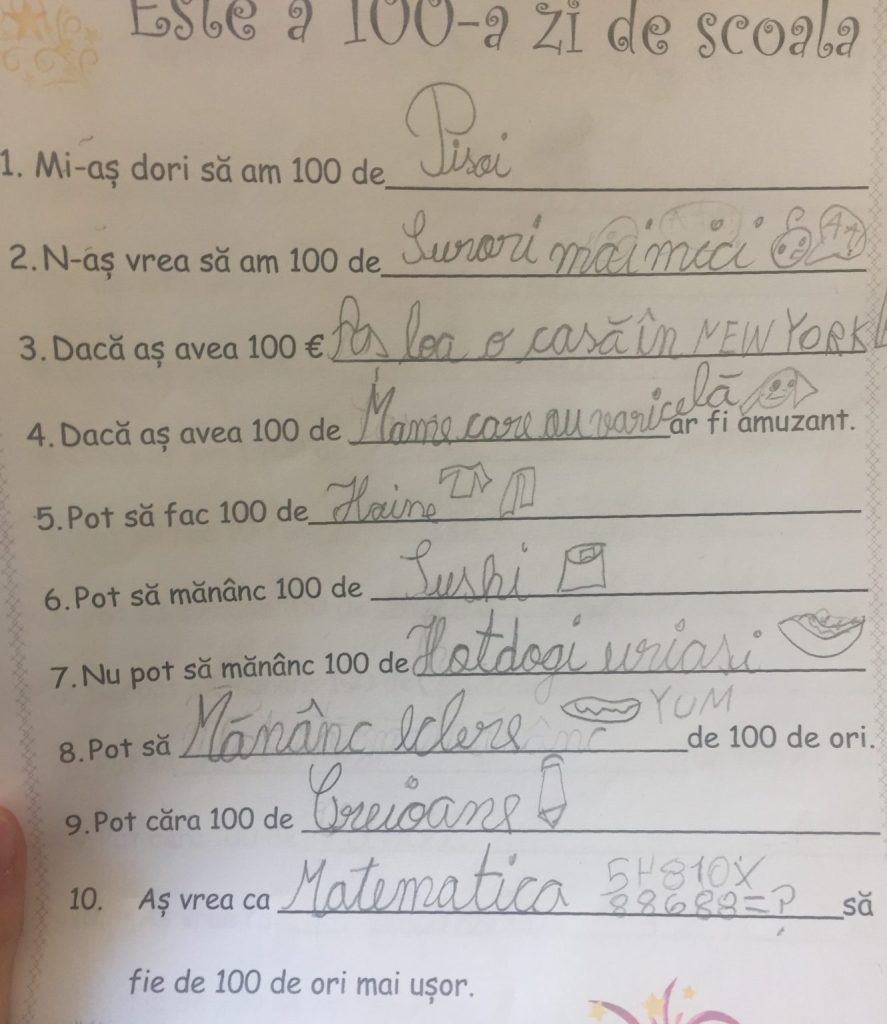 Este a 100-a zi de scoala
1. Mi-aș dori să am 100 de Pisoi
2. N-aș vrea să am 100 de Surori mai mici
3. Dacă aș avea 100 € Aș lea o casă în NEW YORK!
4. Dacă aș avea 100 de Mame care au varicelă ar fi amuzant.
5. Pot să fac 100 de Haine
6. Pot să mănânc 100 de Sushi
7. Nu pot să mănânc 100 de Hotdogi uriasi
8. Pot să Mănânc eclere YUM de 100 de ori.
9. Pot căra 100 de Creioane
10. Aș vrea ca Matematica 5H810X
88688=? să
fie de 100 de ori mai ușor.